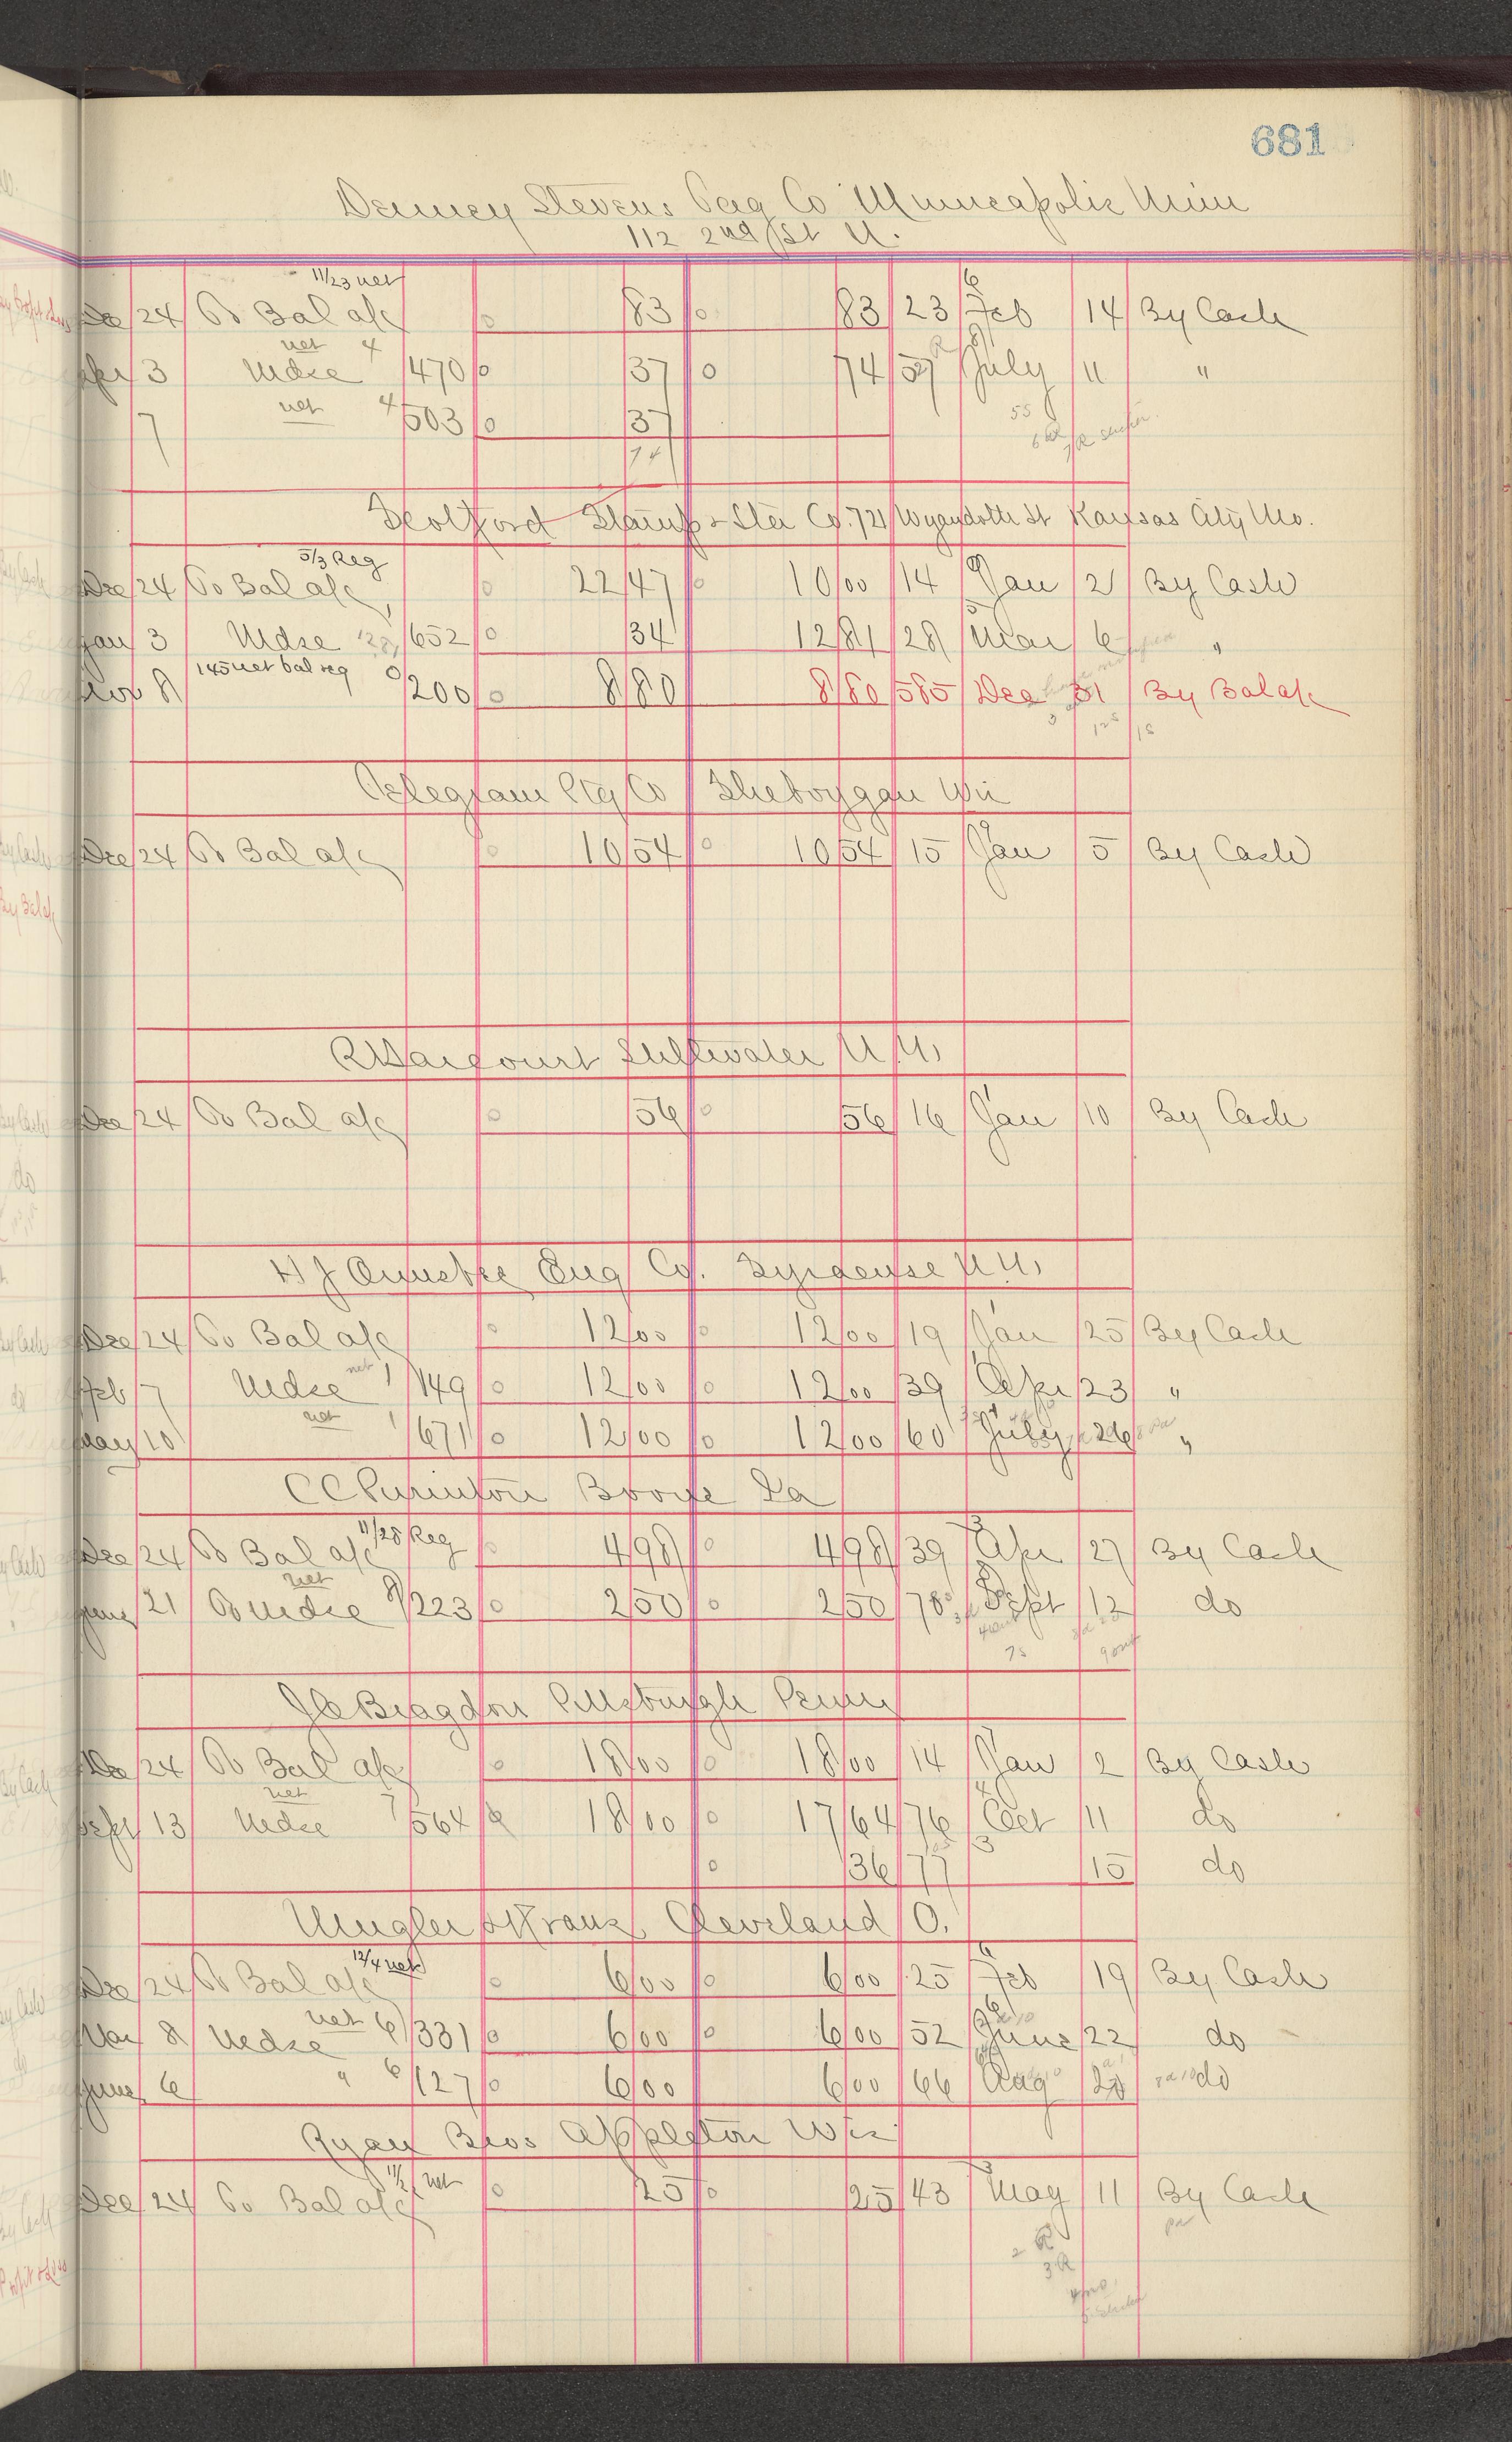 681
Stevens Co Minneapolis Minn
112 2nd St N.
11/23 net
Dec 24 To Bal a/c 0 83 0 83 23 Feb 14 By Cash
net 4
Apr 3 Mdse 470 0 37 0 74 59 July 11 "
7 net 4 503 0 37
74
Stamp & Co. 721 Wyandotte St Kansas City Mo.
5/3 Reg
Dec 24 To Bal a/c 0 22 47 0 10 00 14 Jan 2 By Cash
Jan 3 Mdse 652 0 34 12 81 28 Mar 6 "
145 net bal reg
Nov 8 200 0 8 80 8 80 585 Dec 31 By Bal a/c
Telegram Ptg Co Sheboygan Wis
Dec 24 To Bal a/c 0 10 54 0 10 54 15 Jan 5 By Cash
R Harcourt Stillwater N.Y.
Dec 24 To Bal a/c 0 56 0 56 16 Jan 10 By Cash
H J Ormsbee Eng Co. Syracuse N.Y.
Dec 24 To Bal a/c 0 12 00 0 12 00 19 Jan 25 By Cash
Feb 7 Mdse net 1 149 0 12 00 0 12 00 39 Apr 23 "
May 10 net 1 671 0 12 00 0 12 00 60 July 26 "
C C Purinton Boone Ia
11/28 Reg
Dec 24 To Bal a/c 0 4 98 0 4 98 39 Apr 27 By Cash
net
June 21 To Mdse 8 223 0 2 50 0 2 50 70 Sept 12 do
75
J C Bragdon Pittsburgh Penn
Dec 24 To Bal a/c 0 18 00 0 18 00 14 Jan 2 By Cash
net
Sept 13 Mdse 7 564 0 18 00 0 17 64 76 Oct 11 do
0 36 77 15 do
Mugler & Kranz Cleveland O.
12/4 net
Dec 24 To Bal a/c 0 6 00 0 6 00 25 Feb 19 By Cash
Mar 8 Mdse net 6 331 0 6 00 0 6 00 52 June 22 do
June 6 " 6 127 0 6 00 6 00 66 Aug do
Ryan Bros Appleton Wis
net
Dec 24 To Bal a/c 0 25 0 25 43 May 11 By Cash
pa
2 R
3 R